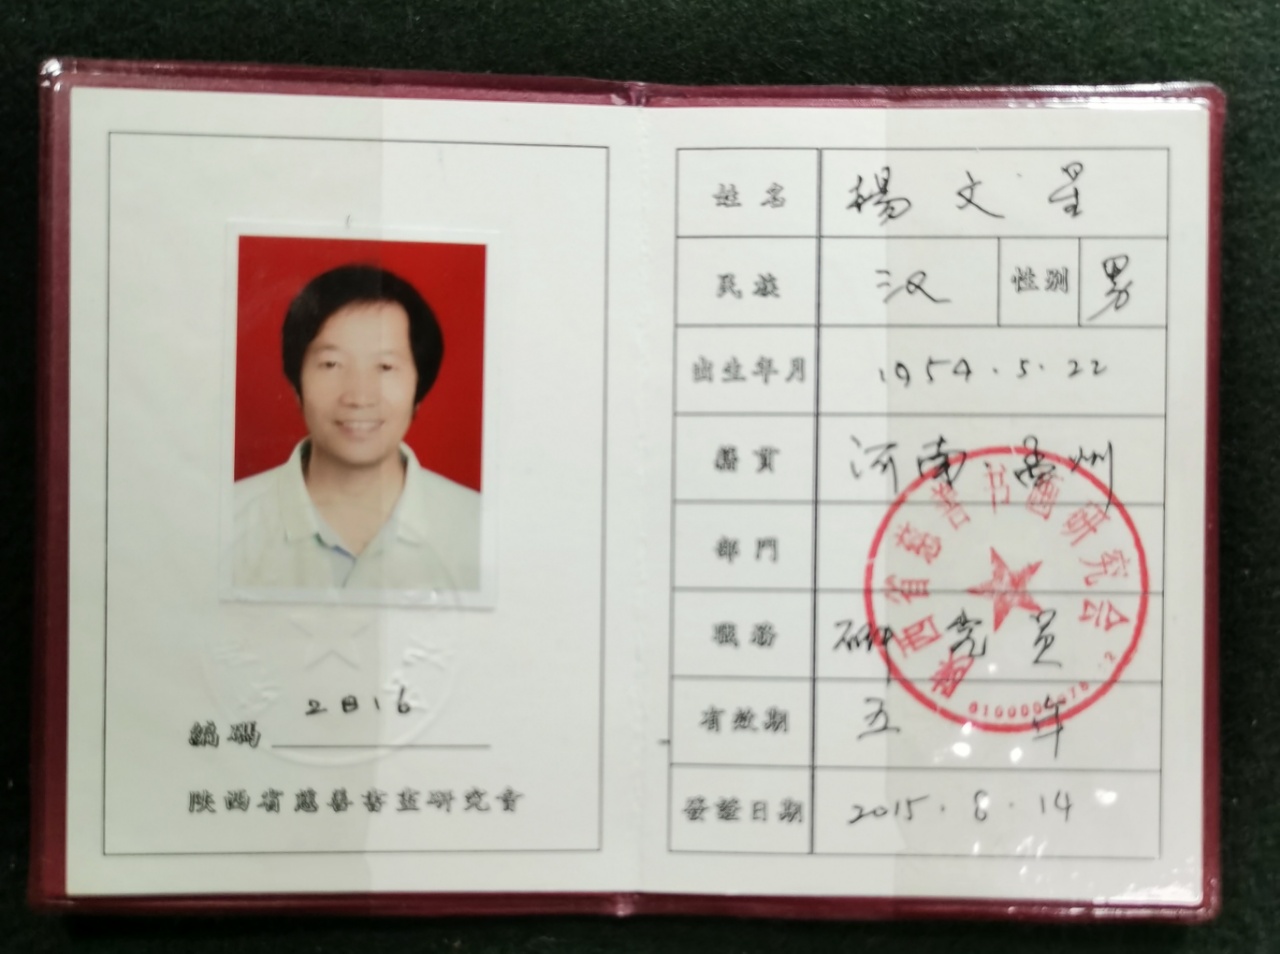 編碼 2816
陕西省慈善書畫研究會
姓名 楊文星
民族 汉 性别 男
出生年月 1954.5.22
籍貫 河南 禹州
部門
職務 研究员
有效期 五年
發證日期 2015.8.14
陕西省慈善书画研究会